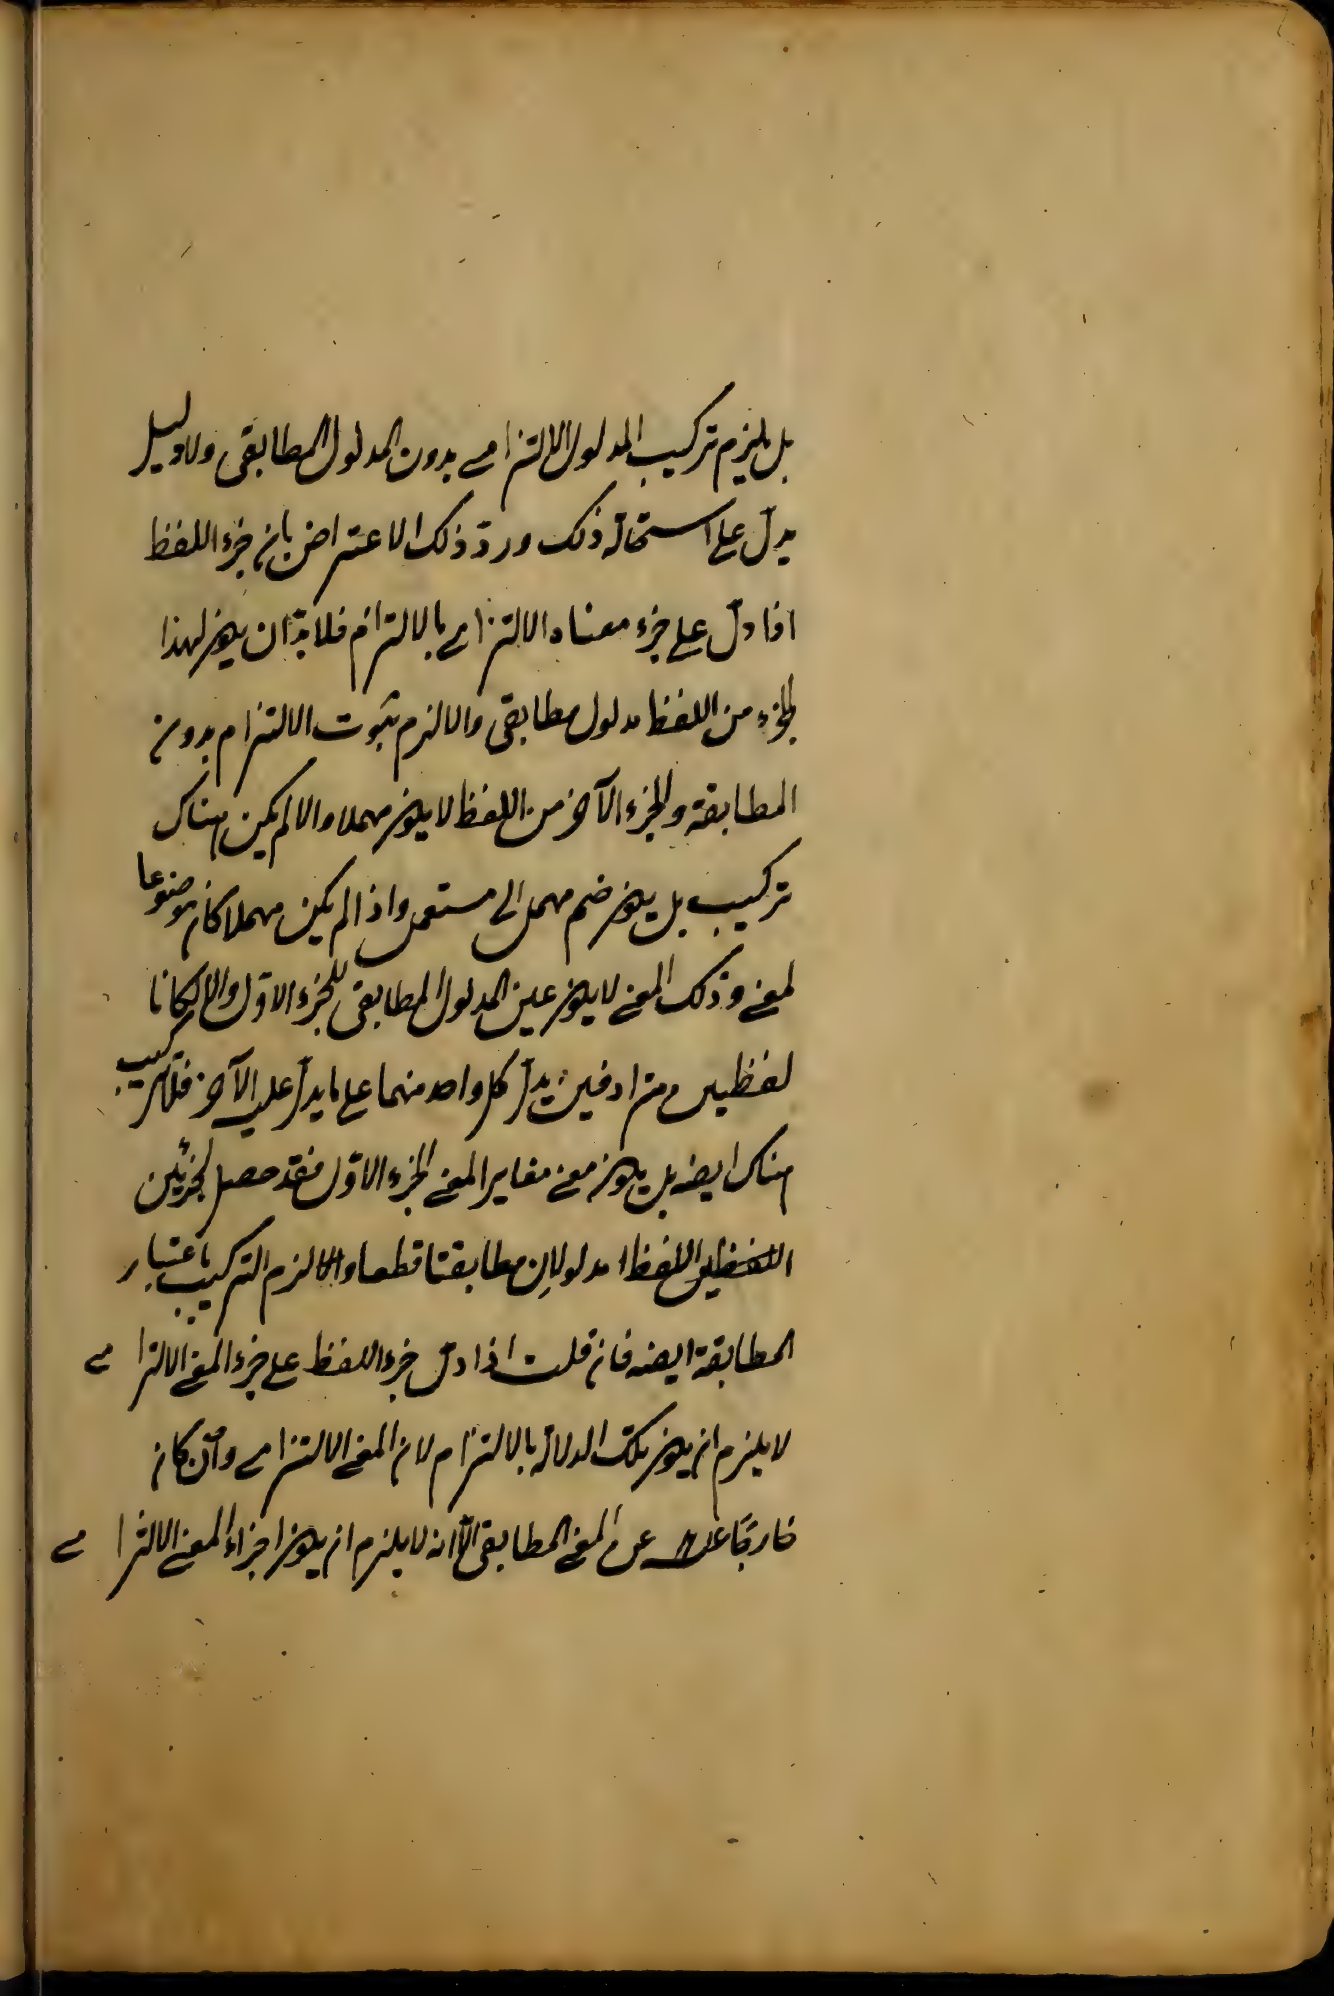 بل يلزم تركيب المدلول الالتزامى بدون المدلول المطابقى ولا دليل
يدلّ على استحالة ذلك وردّ ذلك الاعتراض بان جزء اللفظ
اذا دلّ على جزء معناه الالتزامى بالالتزام فلا بدّ ان يكون لهذا
الجزء من اللفظ مدلول مطابقى والا لزم ثبوت الالتزام بدون
المطابقة والجزء الآخر من اللفظ لا يكون مهملا والا لم يكن هناك
تركيب بل يكون ضم مهمل الى مستعمل واذا لم يكن مهملا كان موضوعا
لمعنى وذلك المعنى لا يكون عين المدلول المطابقى للجزء الاوّل والا لكانا
لفظين مترادفين يدلّ كل واحد منهما على ما يدلّ عليه الآخر فلا تركيب
هناك ايضه بل يكون معنى مغايرا لمعنى الجزء الاوّل فقد حصل لجزئين
اللفظ مدلولان مطابقتا قطعا والا لزم التركيب باعتبار
المطابقة ايضه فان قلت اذا دلّ جزء اللفظ على جزء المعنى الالتزامى
لا يلزم ان يكون تلك الدلالة بالالتزام لان المعنى الالتزامى وان كان
خارجا عن المعنى المطابقى الّا انه لا يلزم ان يكون اجزاء المعنى الالتزامى